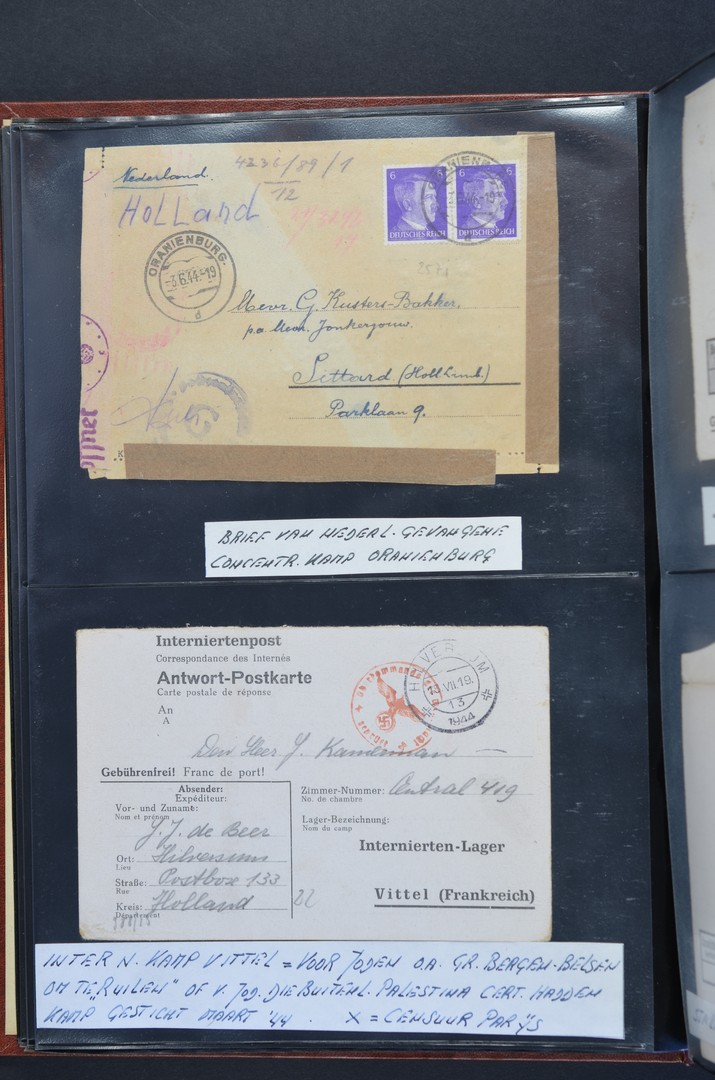 Nederland.
4236/89/1
12
HOLLand
6 6
DEUTSCHES REICH
6 6
DEUTSCHES REICH
ORANIENBURG
ORANIENBURG.
-3.6.44.-19
d
Mevr. G. Kusters-Bakker.
p.a. Mevr. Jonkergouw.
Sittard (Holl. Limb.)
Parklaan 9.
öffnet
BRIEF VAN NEDERL. GEVANGENE
CONCENTR. KAMP ORANIENBURG
Interniertenpost
Correspondance des Internés
Antwort-Postkarte
Carte postale de réponse
An
A
HILVERSUM
13.VII.19.
13
1944
Den Heer J. Kamerman
Gebührenfrei! Franc de port!
Absender:
Expéditeur:
Vor- und Zuname:
Nom et prénom
J. J. de Beer
Ort: Hilversum
Lieu
Straße: Postbox 133
Rue
Kreis: Holland
Département
22
Zimmer-Nummer: Central 419
No. de chambre
Lager-Bezeichnung:
Nom du camp
Internierten-Lager
Vittel (Frankreich)
INTERN. KAMP VITTEL = VOOR JODEN O.A. GR. BERGEN-BELSEN
OM TE "RUILEN" OF V. JOD. DIE BUITENL. PALESTINA CERT. HADDEN
KAMP GESTICHT MAART '44. X = CENSUUR PARYS